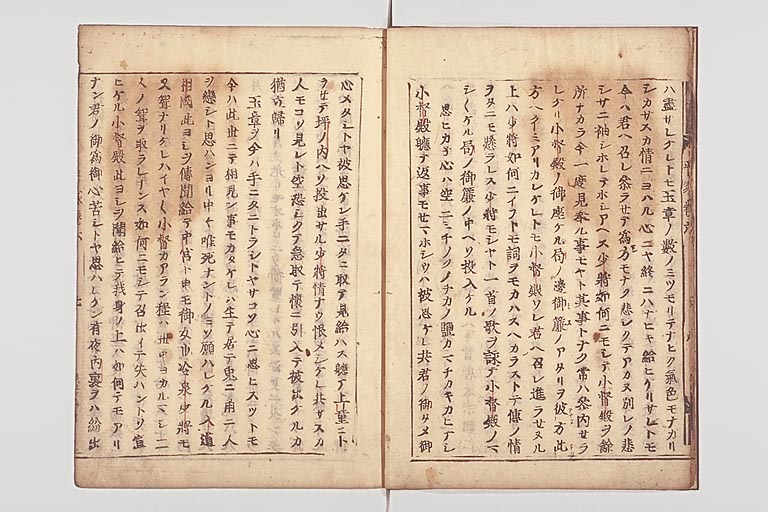 ハ盡サレケレトモ玉章ノ數ノミツモリテナヒク氣色モナカリ
シカサスカ情ニヨハル心ニヤ終ニハナヒキ給ヒケリサレトモ
今ハ君ヘ召レ參ラせテ為方モナク悲シクテアカヌ別レノ悲
シサニ袖シホレテホシアヘス少將如何ニモシテ小督殿ヲ餘
所ナカラ今一度見奉ル事モヤト其事トナク常ハ參內せラ
レケリ小督殿ノ御座ケル局ノ邊御簾ノアタリヲ彼方此
方ヘ
アリカレケレトモ小督殿ワレ君ヘ召レ進ラせヌル
上ハ少將如何ニイフトモ詞ヲモカハスヘカラストテ傳ノ情
ヲタニモ懸ラレス少將モシヤト一首ノ歌ヲ詠テ小督殿ノマ
シ〱ケル局ノ御簾ノ中ヘソ投入ケル
思ヒカネ心ハ空ニミチノクノチカノ鹽カマチカキカヒナシ
小督殿軈テ返事モせマホシウハ被思ケレ共君ノ御タメ御
心メタシトヤ被思ケン手ニタニ取テ見給ハス軈テ上童ニト
ラせテ坪ノ內ヘソ投出サル少將情ナウ恨メシケレ共サスカ
人モコソ見レト空恐シクテ急取テ懷ニ引入テ被出ケルカ
猶立歸リ
玉章ヲ今ハ手ニタニトラシトヤサコソ心ニ思ヒスツトモ
今ハ此世ニテ相見ン事モカタケレハ生テ居テ兎ニ角ニ人
ヲ戀シト思ハンヨリ中々唯死ナントノミソ願ハレケル入道
相國此ヨシヲ傳聞給テ中宮ト申モ御女也冷泉少將モ
又聟ナリケレハイヤ〱小督カアラン程ハ世中ヨカルマシ二
人ノ聟ヲ取ラレナンス如何ニモシテ召出イテ失ハントソ宣
ヒケル小督殿此ヨシヲ聞給ヒテ我身ノ上ハ如何テモアリ
ナン君ノ御為御心苦シトヤ思ハレケン有夜內裏ヲハ紛出